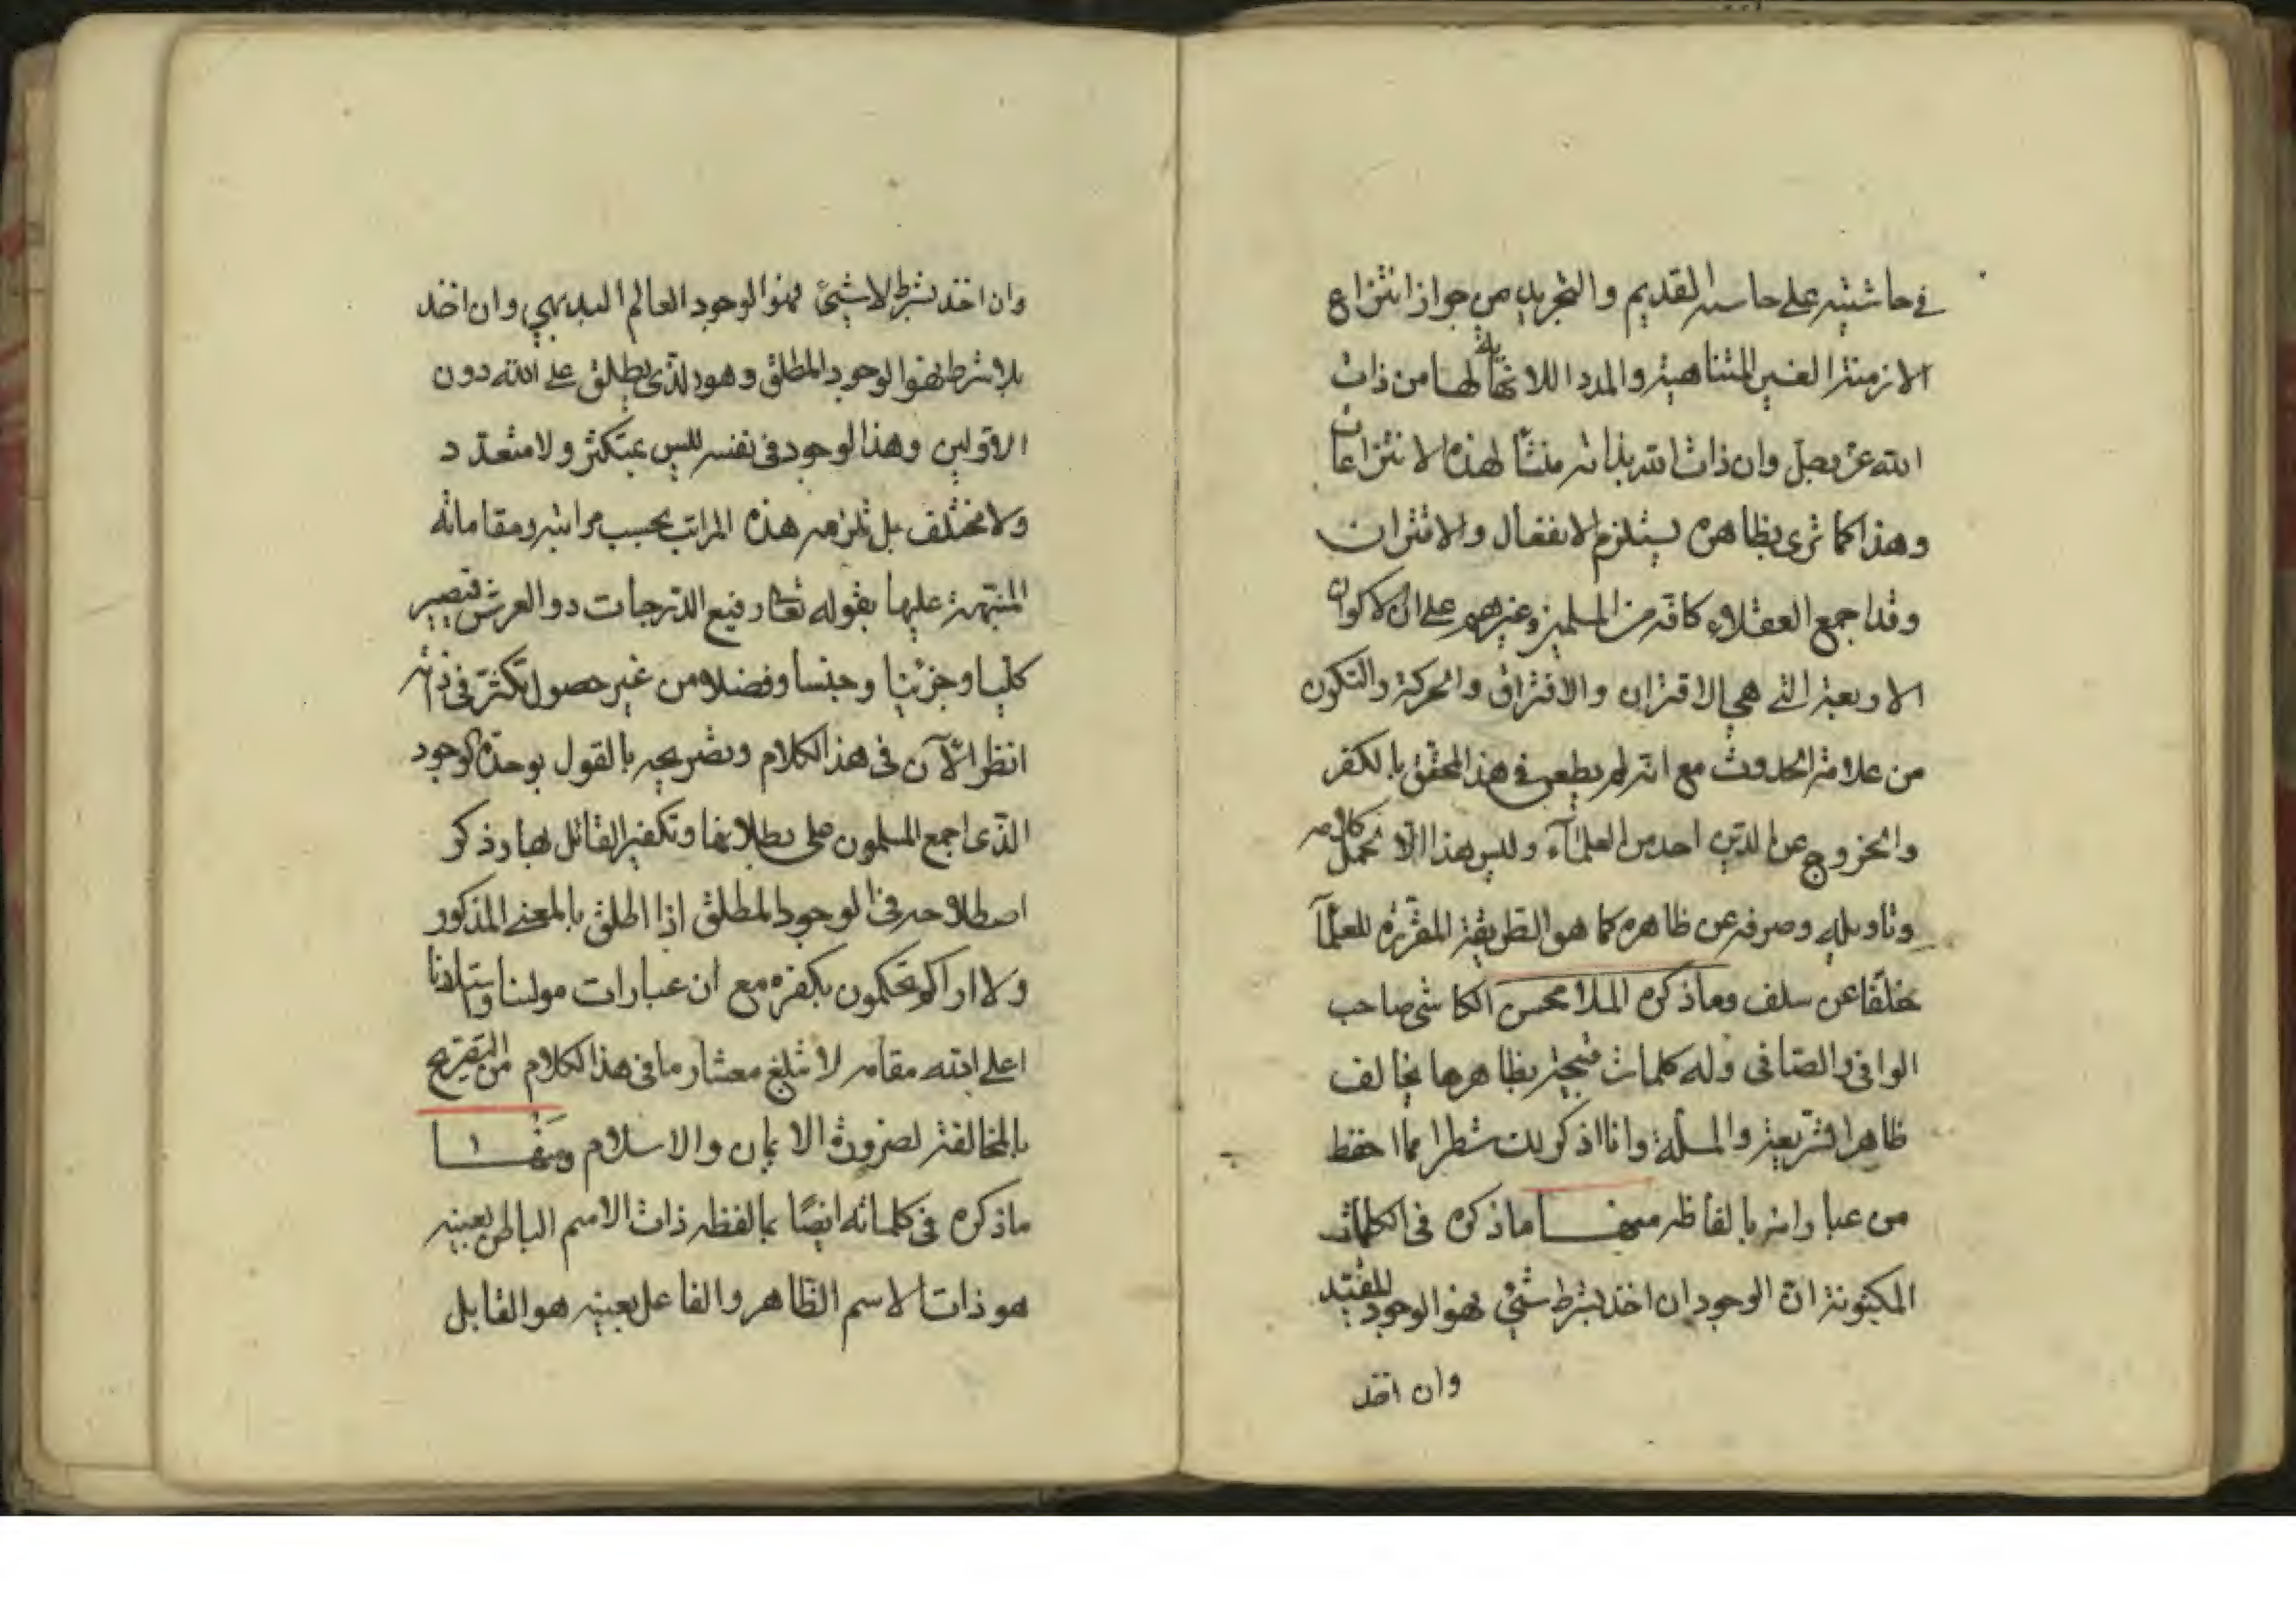 في حاشيته على حاشية القديم والتجريد من جواز انتزاع
الازمنة الغير المتناهية والمدد اللانهاية لها من ذات
الله عز وجل وان ذات الله بذاته منشأ لهذه الانتزاعات
وهذا كما ترى بظاهره يستلزم الانفعال والاقتران
وقد اجمع العقلاء كافة من المسلمين وغيرهم على ان الاكوان
الاربعة التي هي الاقتران والافتراق والحركة والسكون
من علامة الحدوث مع انه لم يطعن في هذا المحقق بالكفر
والخروج عن الدين احد من العلماء وليس هذا الا لحمل كلامه
وتاويله وصرفه عن ظاهره كما هو الطريقة المقررة للعلمآ
خلفا عن سلف وماذكره الملا محسن الكاشي صاحب
الوافي والصافي وله كلمات بظاهرها يخالف
ظاهر الشريعة والملة وانا اذكر لك شطرا مما احفظ
من عباراته بالفاظه منهــا ماذكره في الكلمات
المكنونة ان الوجود ان اخذ بشرط شئ فهو الوجود المقيد
وان اخذ
وان اخذ بشرط لا شئ فهو الوجود العالم البديهي وان اخذ
بلا شرط فهو الوجود المطلق وهو الذي يطلق على الله دون
الاولين وهذا الوجود في نفسه ليس بمتكثر ولا متعدد
ولا مختلف بل تلزمه هذه المراتب بحسب مراتبه ومقاماته
المنبهة عليها بقوله تعالى رفيع الدرجات ذو العرش فتصير
كليا وجزئيا وجنسا وفصلا من غير حصول تكثر في ذاته
انظر الآن في هذا الكلام وتصريحه بالقول بوحدة الوجود
الذي اجمع المسلمون على بطلانها وتكفير القائل بها وذكر
اصطلاحه في الوجود المطلق اذا اطلق بالمعنى المذكور
ولا اراكم تحكمون بكفره مع ان عبارات مولينا واستادنا
اعلى الله مقامه لا تبلغ معشار ما في هذا الكلام من التصريح
بالمخالفة لضرورة الايمان والاسلام ومنهــا
ماذكره في كلماته ايضا بما لفظه ذات الاسم الباطن بعينه
هو ذات الاسم الظاهر والفاعل بعينه هو القابل